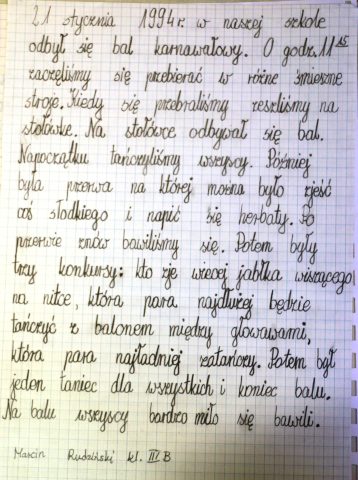 21 stycznia 1994 r. w naszej szkole
odbył się bal karnawałowy. O godz. 11⁴⁵
zaczęliśmy się przebierać w różne śmieszne
stroje. Kiedy się przebraliśmy zeszliśmy na
stołówke. Na stołówce odbywał się bal.
Napoczątku tańczyliśmy wszyscy. Później
była przerwa na której można było zjeść
coś słodkiego i napić się herbaty. Po
przerwie znów bawiliśmy się. Potem były
trzy konkursy: kto zje wiecej jabłka wiszącego
na nitce, która para najdłużej będzie
tańczyć z balonem między głowawami,
która para najładniej zatańczy. Potem był
jeden taniec dla wszystkich i koniec balu.
Na balu wszyscy bardzo miło się bawili.
Marcin Rudziński kl. III B